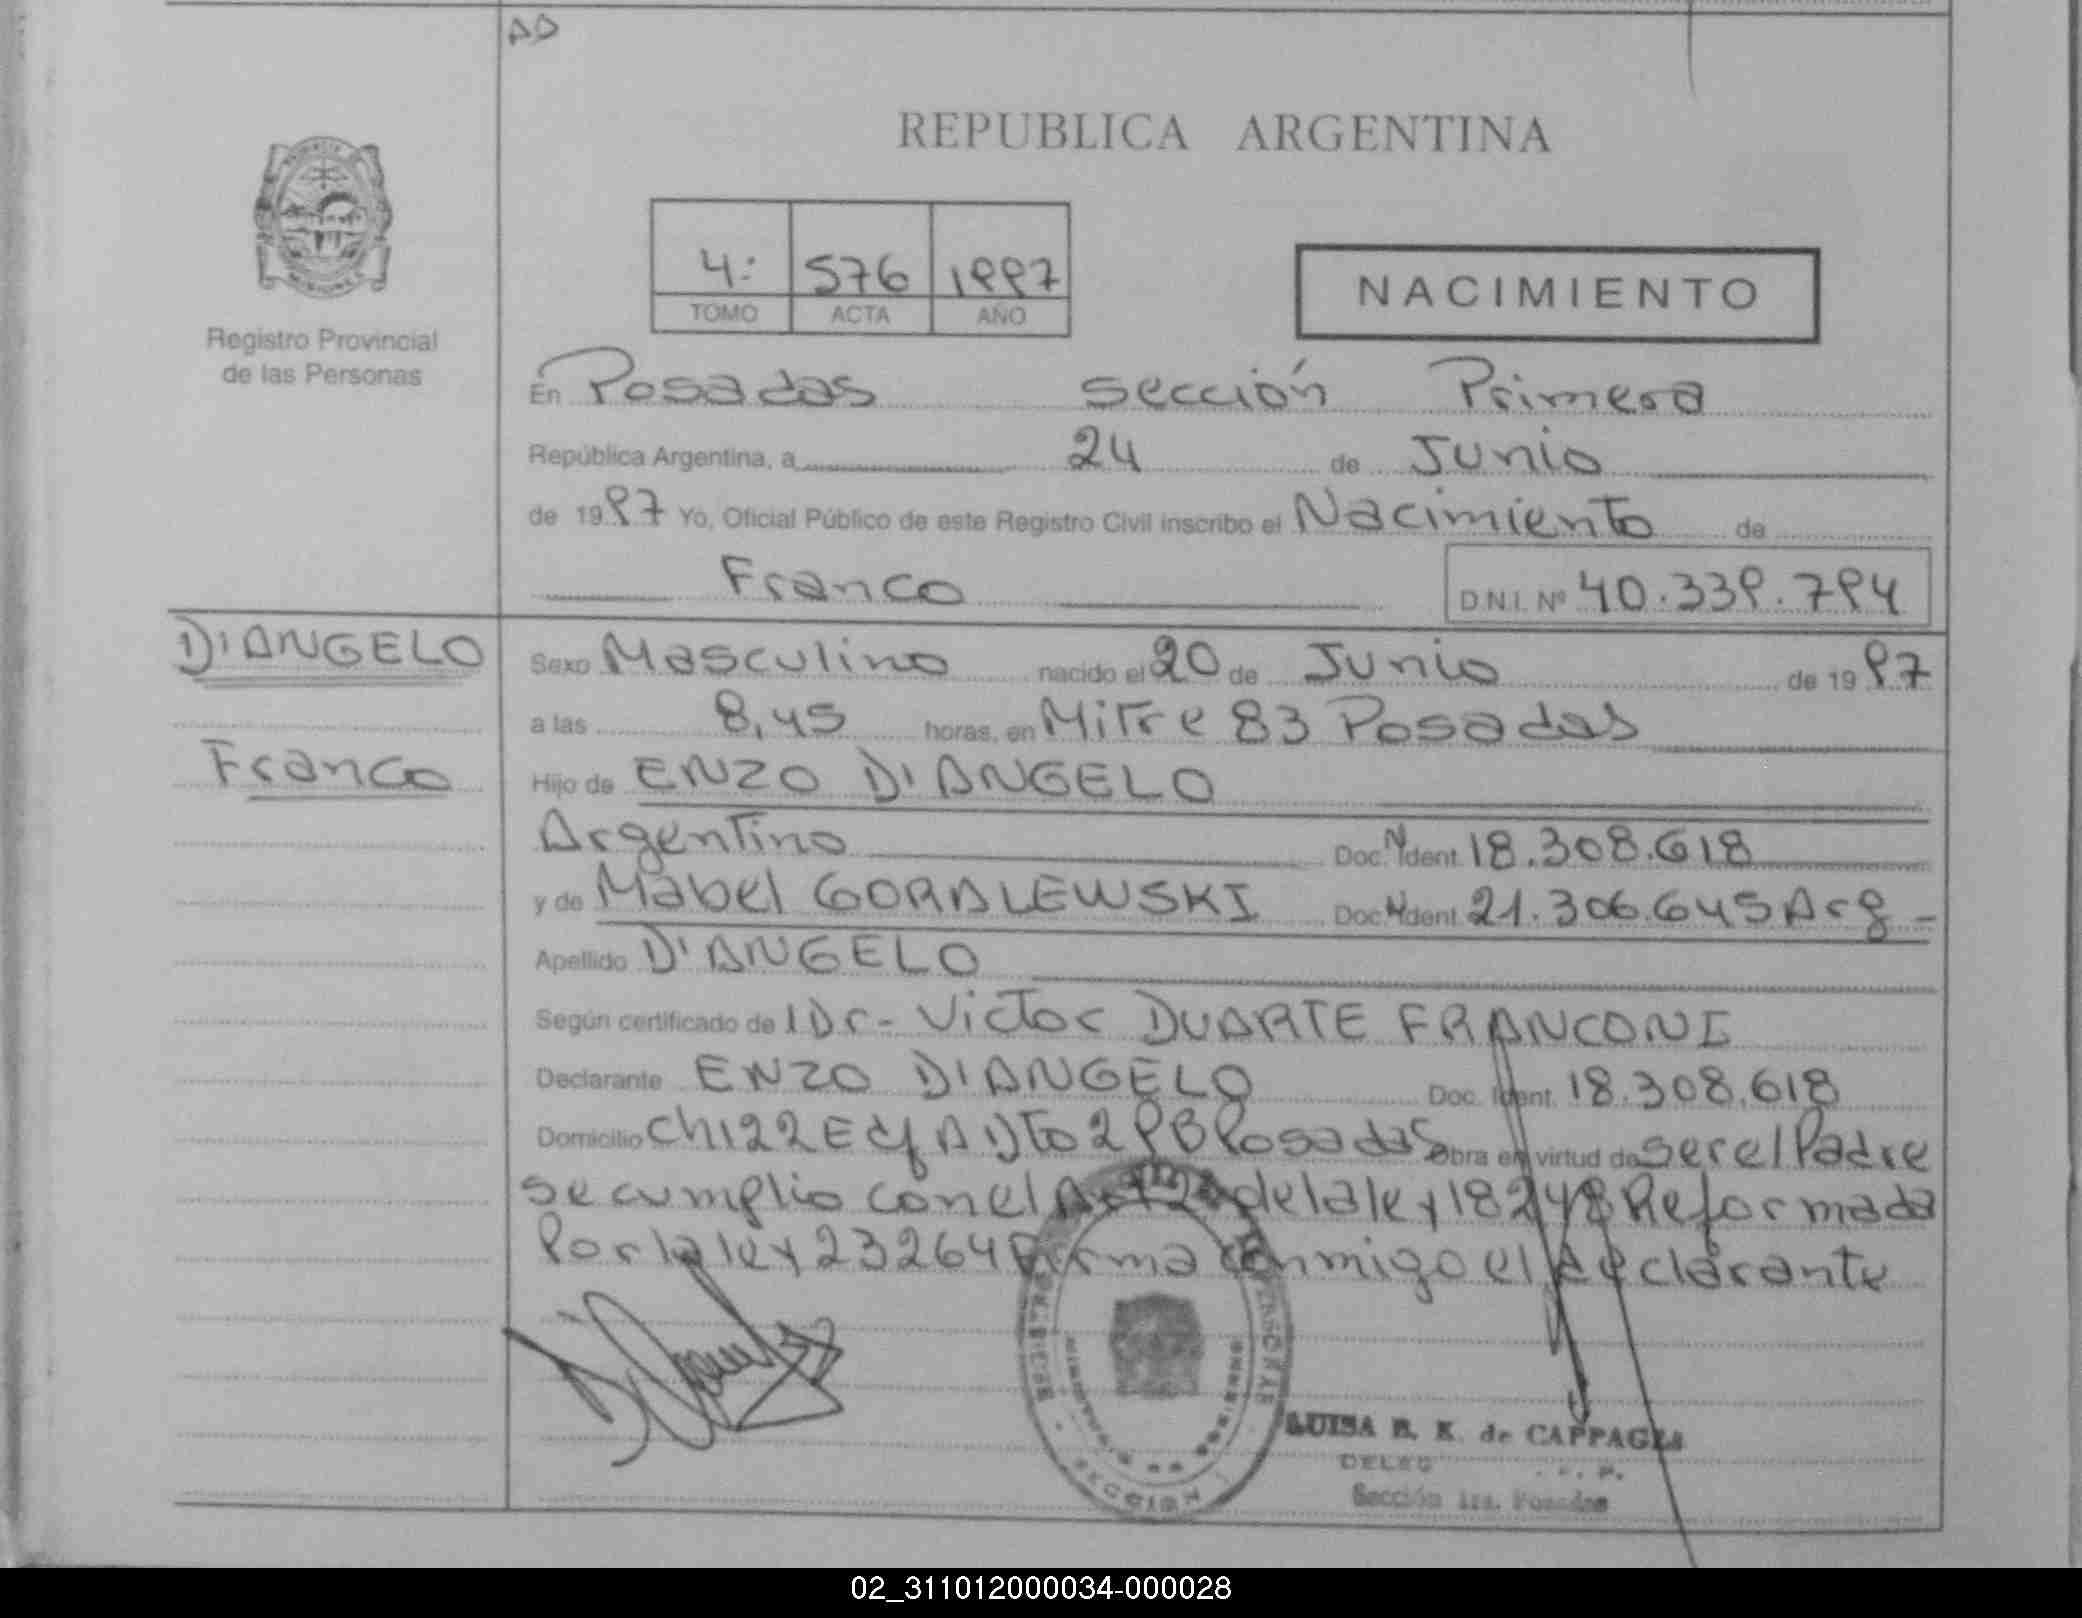 AD
REPUBLICA ARGENTINA
4: 576 1997
TOMO ACTA AÑO
NACIMIENTO
Registro Provincial
de las Personas
En Posadas sección Primera
República Argentina, a 24 de Junio
de 1997 Yo, Oficial Público de este Registro Civil inscribo el Nacimiento de
Franco D.N.I. Nº 40.339.794
D'ANGELO
Franco
Sexo Masculino nacido el 20 de Junio de 1997
a las 8,45 horas, en Mitre 83 Posadas
Hijo de ENZO D'ANGELO
Argentino Doc. Nº Ident. 18.308.618
y de Mabel GORALEWSKI Doc. Nº Ident. 21.306.645 Arg -
Apellido D'ANGELO
Según certificado de 1 Dr- Victor DUARTE FRANCONI
Declarante ENZO D'ANGELO Doc. Ident. 18.308.618
Domicilio Ch122 Edf A Dto 2 PB Posadas Obra en virtud de ser el Padre
se cumplio con el Art 2 de la ley 18248 Reformada
Por la ley 23264 Firma conmigo el declarante
LUISA B. K. de CAPPAGLI
DELEG
Sección 1ra. Posadas
02_311012000034-000028